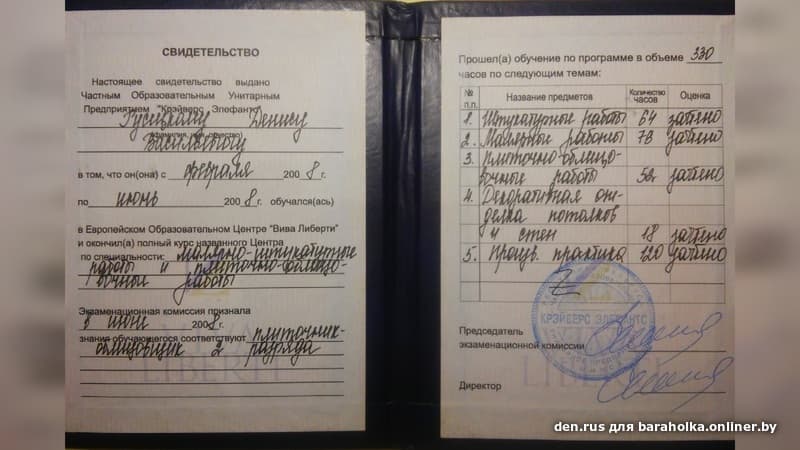 СВИДЕТЕЛЬСТВО
Настоящее свидетельство выдано
Частным Образовательным Унитарным
Предприятием "Крэйверс Элефантс"
Денису
(фамилия, имя, отчество)
Васильевичу
в том, что он(она) с февраля 2008 г.
по июнь 2008 г. обучался(ась)
в Европейском Образовательном Центре "Вива Либерти"
и окончил(а) полный курс названного Центра
по специальности: малярно-штукатурные
работы и плиточно-облицо-
вочные работы
Экзаменационная комиссия признала
в июне 2008 г.
знания обучающегося соответствуют плиточник-
облицовщик 2 разряда
VIVA
LIBERTI
Прошел(а) обучение по программе в объеме 330
часов по следующим темам:
№ п.п. Название предметов Количество часов Оценка
1. Штукатурные работы 64 зачтено
2. Малярные работы 78 зачтено
3. плиточно-облицо-
вочные работы 50 зачтено
4. Декоративная от-
делка потолков
и стен 18 зачтено
5. Произв. практика 120 зачтено
Z
КРЭЙВЕРС ЭЛЕФАНТС
Председатель
экзаменационной комиссии
Директор
LIBERTI
den.rus для baraholka.onliner.by